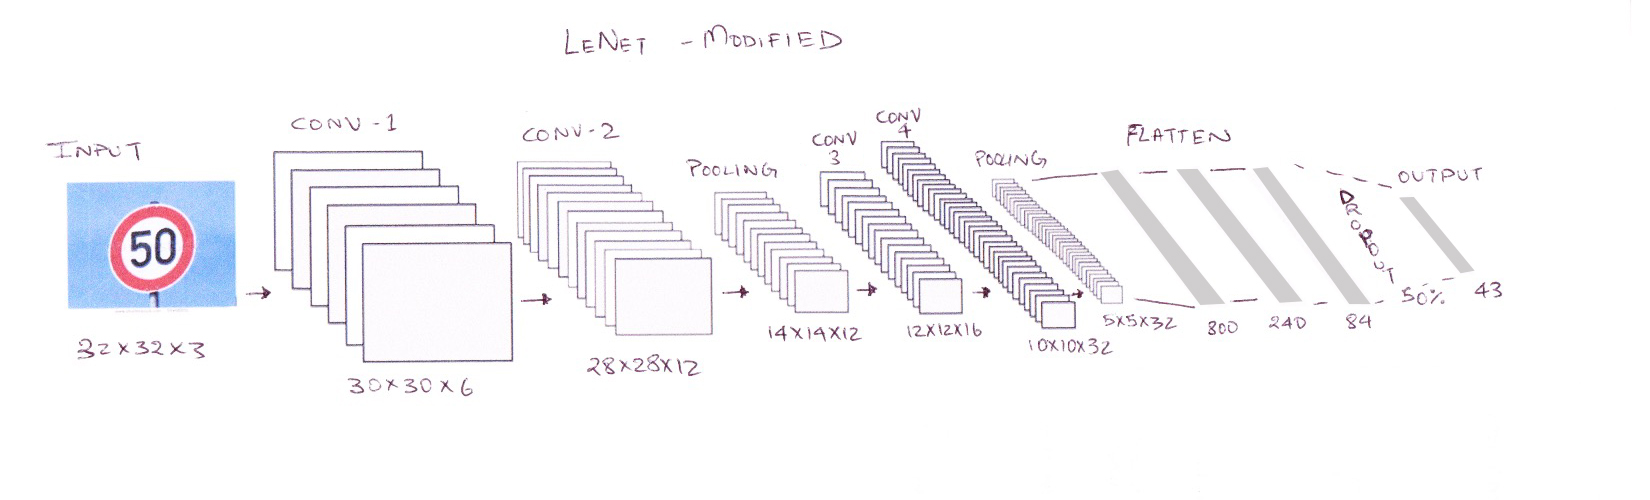 LENET - MODIFIED
INPUT
50
32x32x3
CONV-1
30x30x6
CONV-2
28x28x12
POOLING
14x14x12
CONV
3
12x12x16
CONV
4
10x10x32
POOLING
5x5x32
FLATTEN
800
240
84
DROPOUT
50%
OUTPUT
43